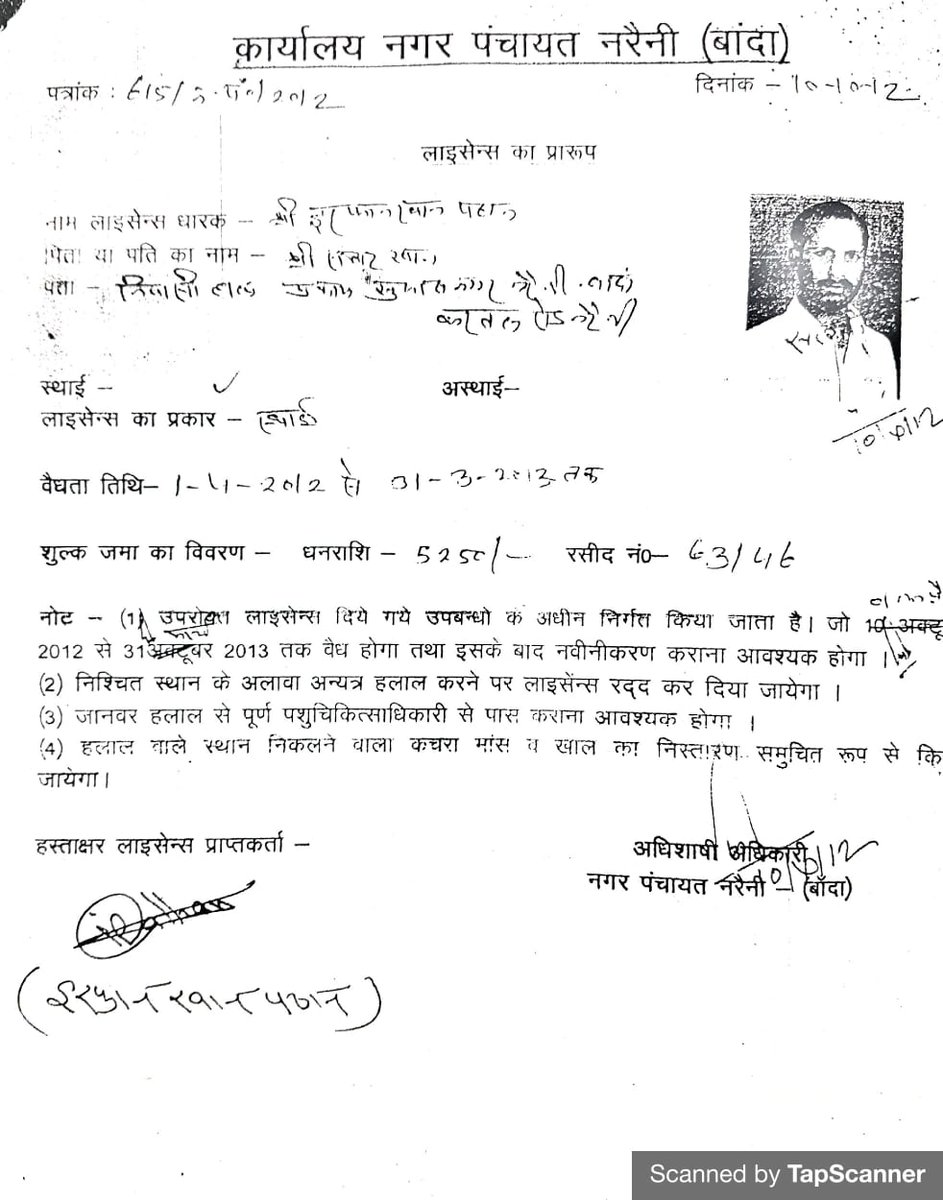 कार्यालय नगर पंचायत नरैनी (बांदा)
पत्रांक : 615/न.पं०/2012
दिनांक – 10-10-12
लाइसेन्स का प्रारूप
नाम लाइसेन्स धारक – श्री इरफान खान पठान
पिता या पति का नाम – श्री खान
पता – निवासी हाल मुकाम सुभाष नगर नरैनी बांदा
करतल रोड नरैनी
स्थाई – ✓ अस्थाई–
लाइसेन्स का प्रकार – स्थाई
वैधता तिथि– 1-4-2012 से 31-3-2013 तक
शुल्क जमा का विवरण – धनराशि – 5250/– रसीद नं०– 63/46
नोट – (1) उपरोक्त लाइसेन्स दिये गये उपबन्धो के अधीन निर्गत किया जाता है। जो 10 अक्टू
2012 से 31 मार्च अक्टूबर 2013 तक वैध होगा तथा इसके बाद नवीनीकरण कराना आवश्यक होगा ।
(2) निश्चित स्थान के अलावा अन्यत्र हलाल करने पर लाइसेंस रद्द कर दिया जायेगा ।
(3) जानवर हलाल से पूर्ण पशुचिकित्साधिकारी से पास कराना आवश्यक होगा ।
(4) हलाल वाले स्थान निकलने वाला कचरा मांस व खाल का निस्तारण समुचित रूप से कि
जायेगा।
हस्ताक्षर लाइसेन्स प्राप्तकर्ता –
अधिशाषी अधिकारी
नगर पंचायत नरैनी – (बाँदा)
(इरफान खान पठान)
Scanned by TapScanner